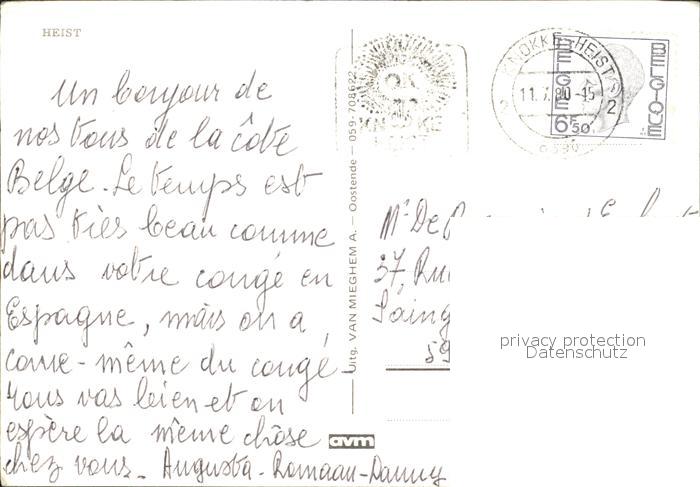 HEIST
Un bonjour de
nos tous de la côte
Belge. Le temps est
pas très beau comme
dans votre congé en
Espagne, mais on a
came-même du congé.
Tous vas bien et on
espère la même chose
chez vous. Augusta-Romaan-Danny
Uitg. VAN MIEGHEM A. — Oostende — 059-708622
avm
KNOKKE-HEIST
2 11.7.80-15 2
BELGIE
BELGIQUE
6F50
Mr De
37, Rue
Saing
59
privacy protection
Datenschutz